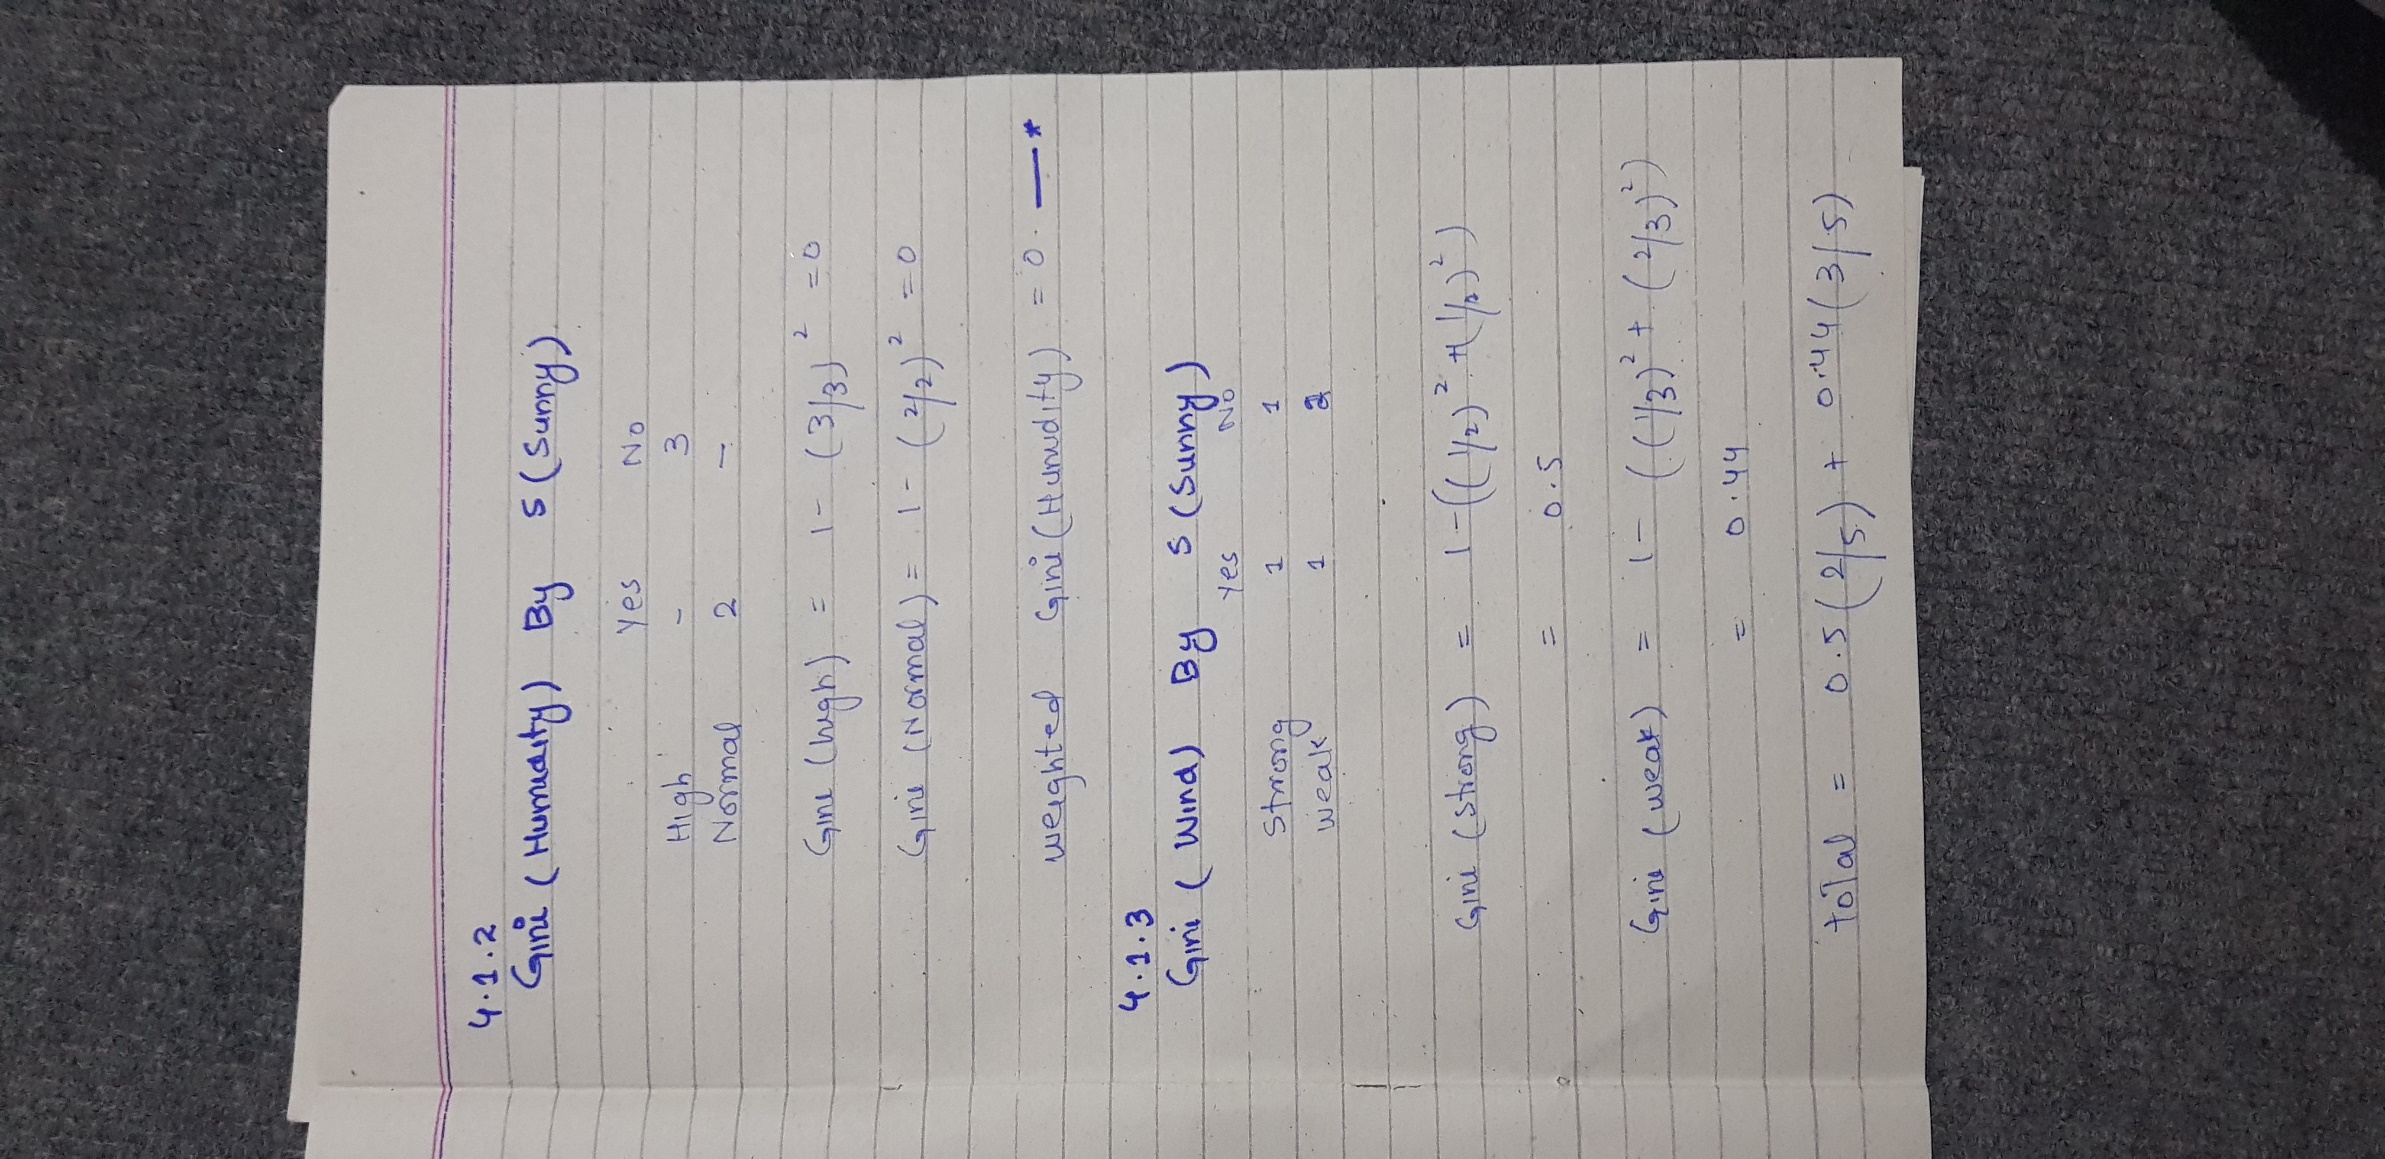 4.1.2
Gini (Humidity) By S (Sunny)
Yes No
High - 3
Normal 2 -
Gini (high) = 1 - (3/3)² = 0
Gini (Normal) = 1 - (2/2)² = 0
weighted Gini (Humidity) = 0. —*
4.1.3
Gini (Wind) By S (Sunny)
Yes No
Strong 1 1
weak 1 2
Gini (strong) = 1 - ((1/2)² + (1/2)²)
= 0.5
Gini (weak) = 1 - ((1/3)² + (2/3)²)
= 0.44
total = 0.5 (2/5) + 0.44 (3/5)